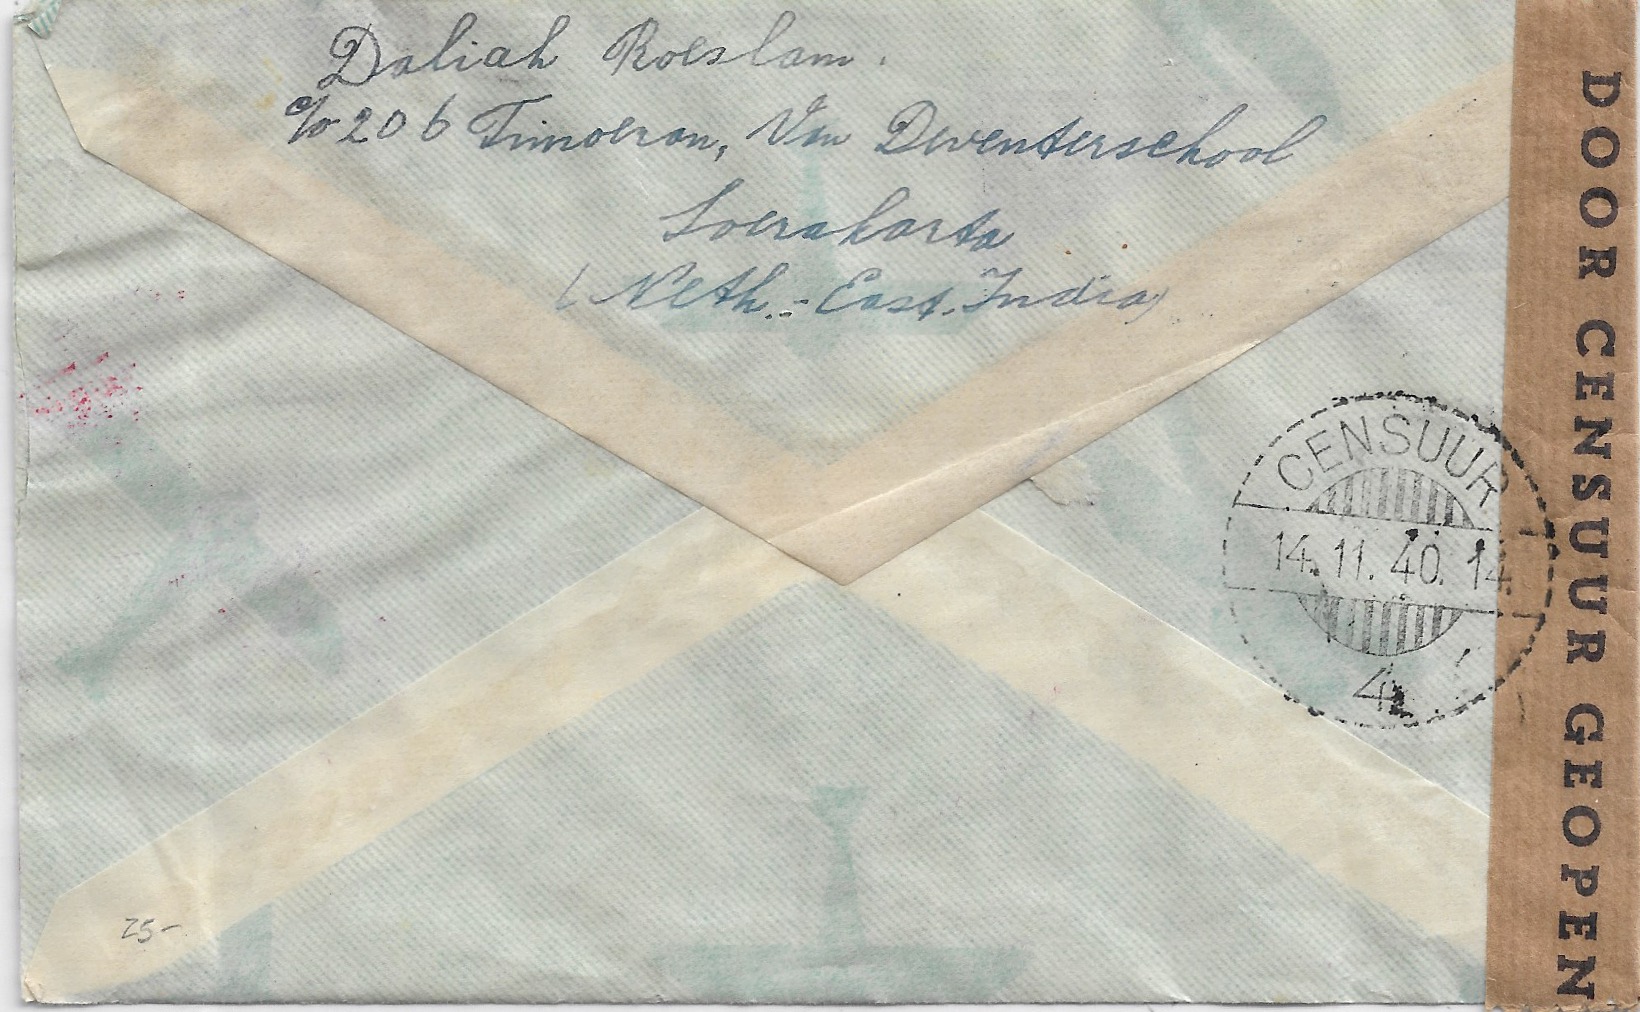 Daliah Roeslam.
c/o 206 Timoeran, Van Deventerschool
Soerakarta
(Neth.-East.India)
CENSUUR
14.11.40.14
4
DOOR CENSUUR GEOPEN
25-